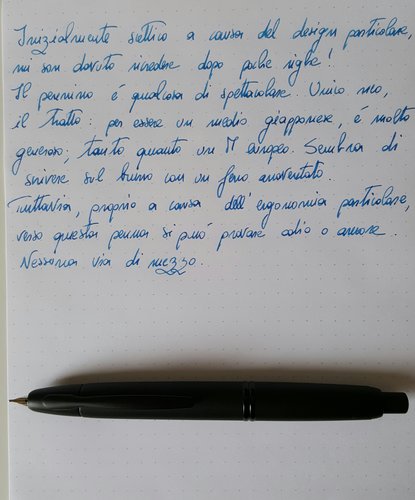 Inizialmente scettico a causa del design particolare,
mi son dovuto ricredere dopo poche righe!
Il pennino é qualcosa di spettacolare. Unico neo,
il tratto: per essere un medio giapponese, é molto
generoso, tanto quanto un M europeo. Sembra di
scrivere sul burro con un ferro arroventato.
Tuttavia, proprio a causa dell'ergonomia particolare,
verso questa penna si puó provare odio o amore.
Nessuna via di mezzo.